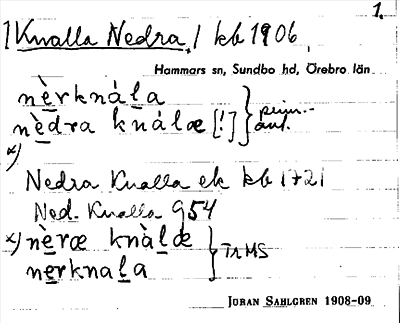 1.
/Knalla Nedra,/ kb 1906
Hammars sn, Sundbo hd, Örebro län
nèrknála
nèdra knálæ [!]
x)
Nedra Knalla ek kb 1721
Ned. Knalla G54
x) nèræ knàlæ
nerknala
JÖRAN SAHLGREN 1908-09